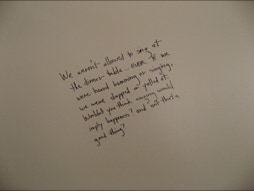 We weren't allowed to sing at
the dinner table. even if we
were heard humming or singing,
we were slapped or yelled at.
Wouldn't you think singing would
imply happiness? and isn't that a
good thing?